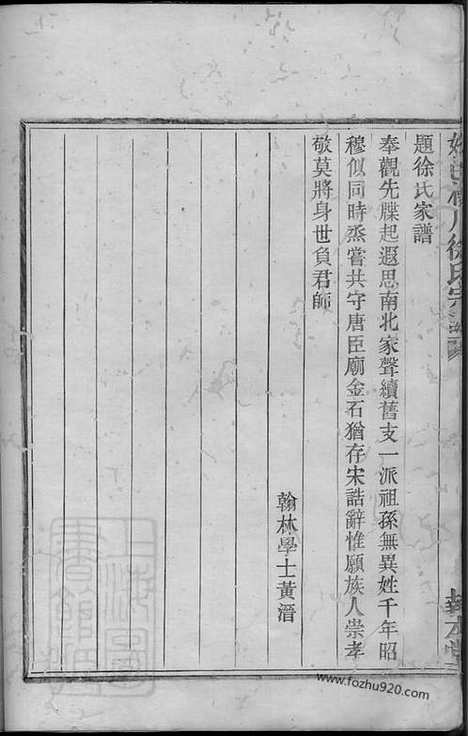 題徐氏家譜
奉觀先牒起遐思南北家聲續舊支一派祖孫無異姓千年昭
穆似同時烝嘗共守唐臣廟金石猶存宋誥辭惟願族人崇孝
敬莫將身世負君師
翰林學士黃溍
徐氏宗譜
上海圖書館藏
www.fozhu920.com